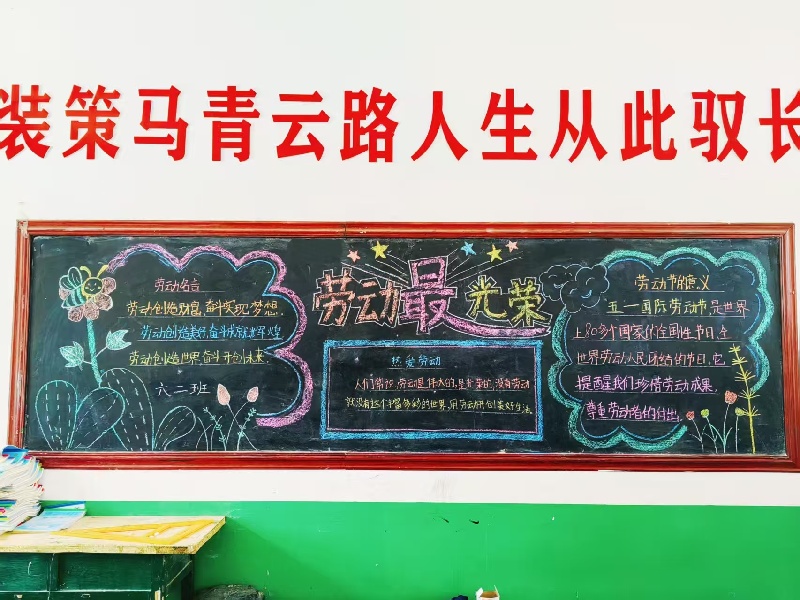 装策马青云路人生从此驭长
劳动最光荣
劳动名言
劳动创造财富,奋斗实现梦想.
劳动创造美好,奋斗成就辉煌
劳动创造世界,奋斗开创未来.
六二班
热爱劳动
人们常说,劳动是伟大的,是光荣的,没有劳动
就没有这个繁多的世界,用劳动创美好生活
劳动节的意义
五一国际劳动节是世界
上80多个国家的全国性节日,全
世界劳动人民团结的节日,它
提醒我们珍惜劳动成果,
尊重劳动者的付出.